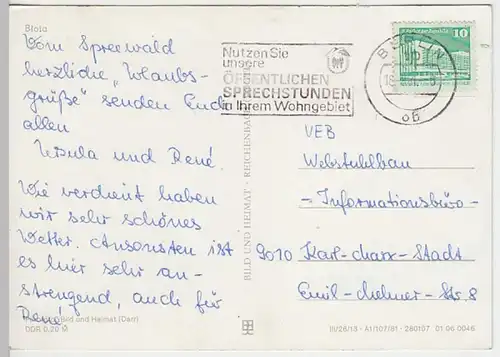 Blota
Vom Spreewald
herzliche „Urlaubs-
grüße" senden Euch
allen
Ursula und René.
Wie verdient haben
wir sehr schönes
Wetter. Ansonsten ist
es hier sehr an-
strengend, auch für
René.
Bild und Heimat (Darr)
DDR 0,20 M
BILD UND HEIMAT · REICHENBACH
Nutzen Sie
unsere
ÖFFENTLICHEN
SPRECHSTUNDEN
in Ihrem Wohngebiet
BERLIN
10
VEB
Webstuhlbau
- Informationsbüro -
9010 Karl-Marx-Stadt
Emil-        -Str. 8
III/26/13 · A1/107/81 · 280107 01 06 0046